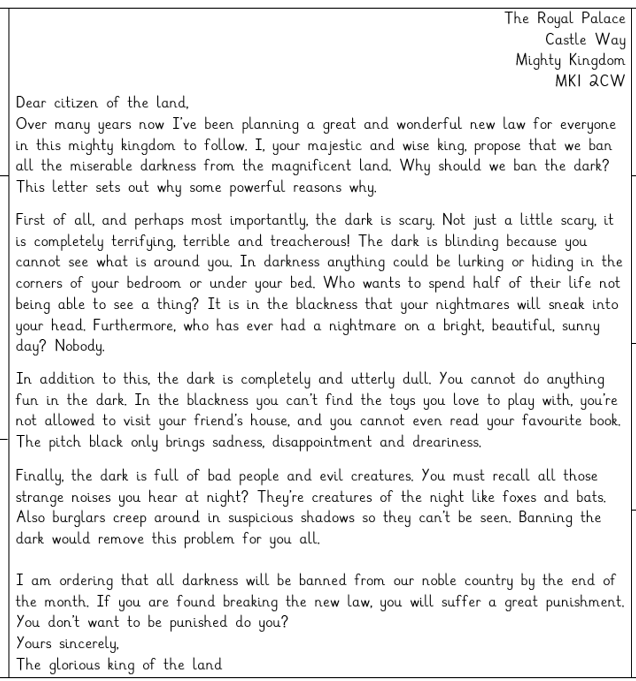 The Royal Palace
Castle Way
Mighty Kingdom
MK1 2CW
Dear citizen of the land,
Over many years now I've been planning a great and wonderful new law for everyone
in this mighty kingdom to follow. I, your majestic and wise king, propose that we ban
all the miserable darkness from the magnificent land. Why should we ban the dark?
This letter sets out why some powerful reasons why.
First of all, and perhaps most importantly, the dark is scary. Not just a little scary, it
is completely terrifying, terrible and treacherous! The dark is blinding because you
cannot see what is around you. In darkness anything could be lurking or hiding in the
corners of your bedroom or under your bed. Who wants to spend half of their life not
being able to see a thing? It is in the blackness that your nightmares will sneak into
your head. Furthermore, who has ever had a nightmare on a bright, beautiful, sunny
day? Nobody.
In addition to this, the dark is completely and utterly dull. You cannot do anything
fun in the dark. In the blackness you can't find the toys you love to play with, you're
not allowed to visit your friend's house, and you cannot even read your favourite book.
The pitch black only brings sadness, disappointment and dreariness.
Finally, the dark is full of bad people and evil creatures. You must recall all those
strange noises you hear at night? They're creatures of the night like foxes and bats.
Also burglars creep around in suspicious shadows so they can't be seen. Banning the
dark would remove this problem for you all.
I am ordering that all darkness will be banned from our noble country by the end of
the month. If you are found breaking the new law, you will suffer a great punishment.
You don't want to be punished do you?
Yours sincerely,
The glorious king of the land